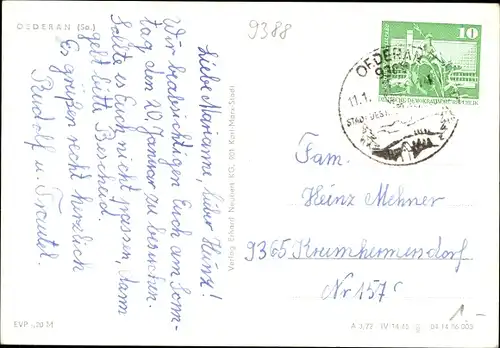 OEDERAN (Sa.)
9388
Liebe Marianne, lieber Heinz!
Wir beabsichtigen Euch am Sonn-
tag, den 20. Januar zu besuchen.
Sollte es Euch nicht passen, dann
gebt bitte Bescheid.
Es grüßen recht herzlich
Rudolf u. Traudel.
Verlag Erhard Neubert KG, 901 Karl-Marx-Stadt
10
OEDERAN
11.1.
Fam.
Heinz Mehner
9365 Krumhermersdorf
Nr 157c
1.-
EVP -,20 M
A 3/73 IV 14 45
04 14 06 003